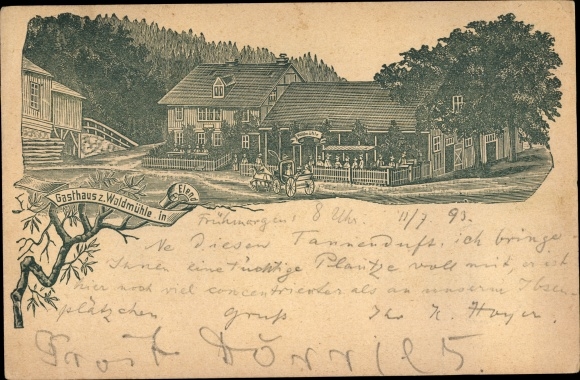 Gasthaus z. Waldmühle in Elend
Frühmorgens 8 Uhr. 11/7. 93.
Ne diesen Tannenduft. ich bringe
Ihnen eine tüchtige voll mit, er ist
hier noch viel concentrierter als an unserm
plätzchen Gruß. Ihr Hoyer.
Prosit